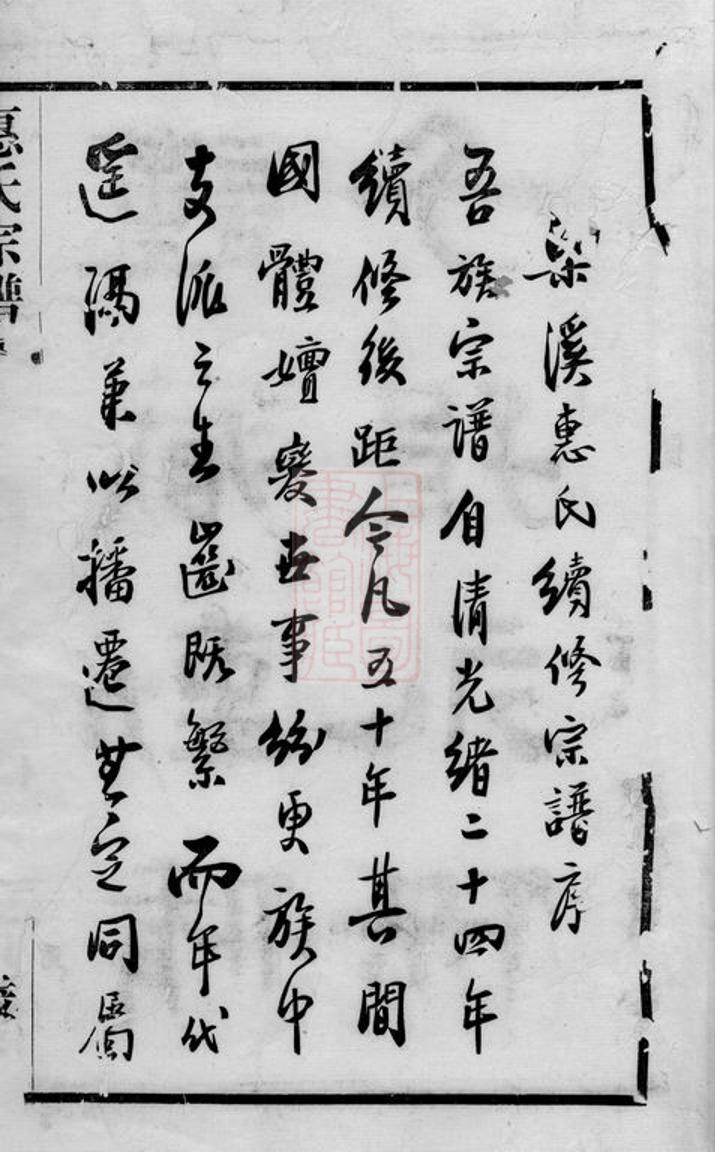 梁溪惠氏續修宗譜序
吾族宗譜自清光緒二十四年
續修後距今凡五十年其間
國體嬗變世事紛更族中
支派之生齒既繁而年代
遥隔兼以播遷無定同屬
惠氏宗譜
序